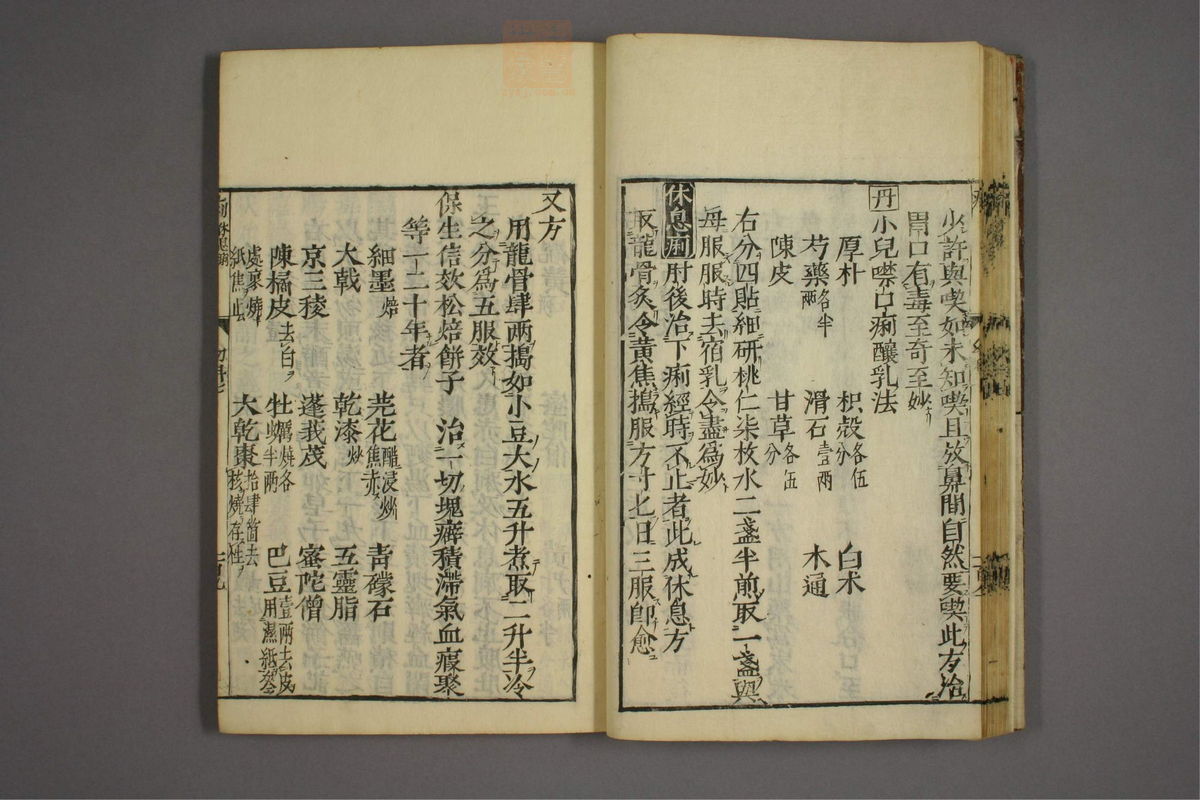 少許與喫如未知喫且放鼻間自然要喫此方治
胃口有毒至奇至妙
丹小兒噤口痢釀乳法
厚朴 枳殼各伍分 白朮
芍藥各半兩 滑石壹兩 木通
陳皮 甘草各伍分
右分四貼細研桃仁柒枚水二盞半煎取一盞與
母服服時去宿乳令盡爲妙
休息痢 肘後治下痢經時不止者此成休息方
取龍骨炙令黃焦搗服方寸匕日三服卽愈
又方
用龍骨肆兩搗如小豆大水五升煮取二升半冷
之分爲五服效
保生信效松焙餅子 治一切塊癖積滯氣血瘕聚
等一二十年者
細墨焙 芫花醋浸炒焦赤 靑礞石
大戟 乾漆炒 五靈脂
京三稜 蓬莪茂 蜜陀僧
陳橘皮去白 牡蠣燒各半兩 巴豆壹兩去皮用濕紙
處裹燒紙焦止 大乾棗拾肆箇去核燒存性